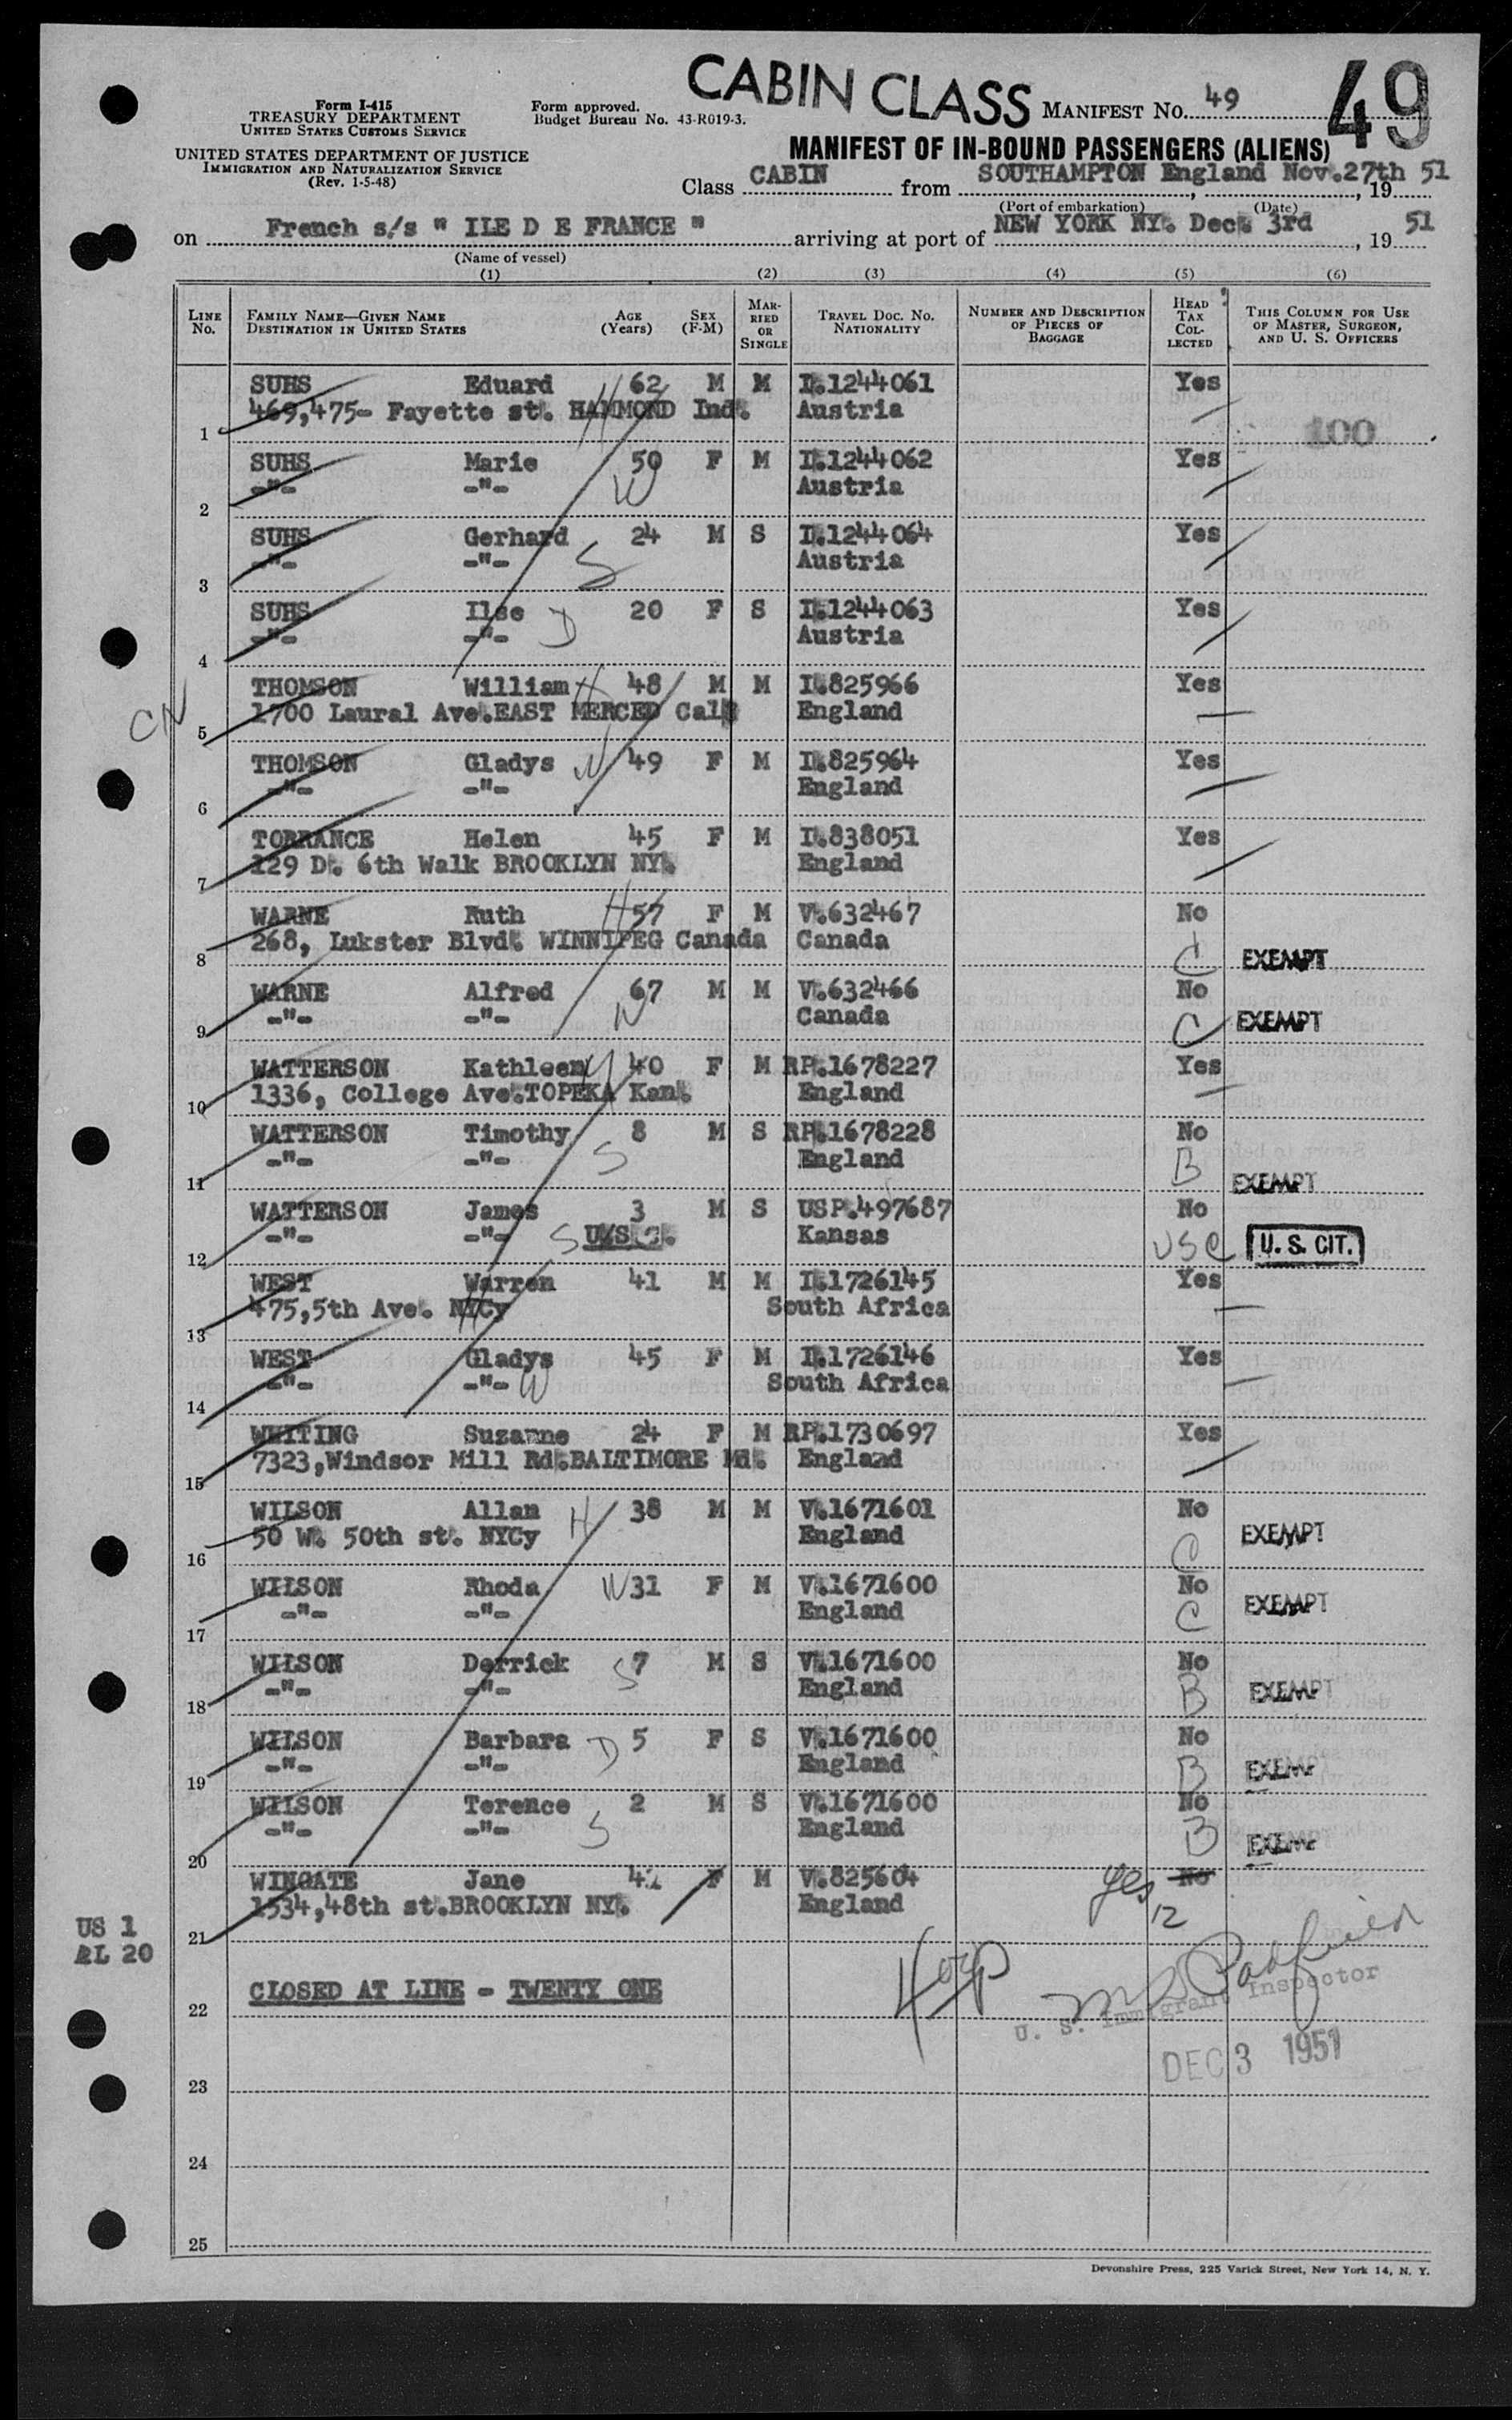 CABIN CLASS
Form I-415
TREASURY DEPARTMENT
UNITED STATES CUSTOMS SERVICE
UNITED STATES DEPARTMENT OF JUSTICE
IMMIGRATION AND NATURALIZATION SERVICE
(Rev. 1-5-48)
Form approved.
Budget Bureau No. 43-R019-3.
MANIFEST NO. 49
49
MANIFEST OF IN-BOUND PASSENGERS (ALIENS)
Class CABIN from SOUTHAMPTON England Nov. 27th, 19 51
(Port of embarkation) (Date)
on French s/s " ILE D E FRANCE " arriving at port of NEW YORK NY. Dec. 3rd, 19 51
(Name of vessel)
(1) (2) (3) (4) (5) (6)
LINE No. FAMILY NAME—GIVEN NAME DESTINATION IN UNITED STATES AGE (Years) SEX (F-M) MARRIED OR SINGLE TRAVEL DOC. NO. NATIONALITY NUMBER AND DESCRIPTION OF PIECES OF BAGGAGE HEAD TAX COLLECTED THIS COLUMN FOR USE OF MASTER, SURGEON, AND U. S. OFFICERS
SUHS Eduard 62 M M I.1244061 Yes
1 469,475- Fayette st. HAMMOND Ind. H Austria 100
SUHS Marie 50 F M I.1244062 Yes
2 -"- -"- W Austria
SUHS Gerhard 24 M S I.1244064 Yes
3 -"- -"- S Austria
SUHS Ilse 20 F S I.1244063 Yes
4 -"- -"- D Austria
THOMSON William H 48 M M I.825966 Yes
CN 5 1700 Laural Ave.EAST MERCED Cal. England
THOMSON Gladys W 49 F M I.825964 Yes
6 -"- -"- England
TORRANCE Helen 45 F M I.838051 Yes
7 129 D. 6th Walk BROOKLYN NY. England
WARNE Ruth H 57 F M V.632467 No
8 268, Lukster Blvd. WINNIPEG Canada Canada C EXEMPT
WARNE Alfred 67 M M V.632466 No
9 -"- -"- W Canada C EXEMPT
WATTERSON Kathleen 40 F M RP.1678227 Yes
10 1336, College Ave.TOPEKA Kan. England
WATTERSON Timothy 8 M S RP.1678228 No
11 -"- -"- S England B EXEMPT
WATTERSON James 3 M S USP.497687 No
12 -"- -"- S U.S.C. Kansas USC U. S. CIT.
WEST Warren 41 M M I.1726145 Yes
13 475,5th Ave. NYCy H South Africa
WEST Gladys 45 F M I.1726146 Yes
14 -"- -"- W South Africa
WHITING Suzanne 24 F M RP.1730697 Yes
15 7323,Windsor Mill Rd.BALTIMORE Md. England
WILSON Allan H 38 M M V.1671601 No
16 50 W. 50th st. NYCy England C EXEMPT
WILSON Rhoda W 31 F M V.1671600 No
17 -"- -"- England C EXEMPT
WILSON Derrick S 7 M S V.1671600 No
18 -"- -"- England B EXEMPT
WILSON Barbara D 5 F S V.1671600 No
19 -"- -"- England B EXEMPT
WILSON Terence 2 M S V.1671600 No
20 -"- -"- S England B EXEMPT
WINGATE Jane F M V.825604 yes No
21 1534,48th st.BROOKLYN NY. England 12
US 1
AL 20
22 CLOSED AT LINE - TWENTY ONE
U. S. Immigrant Inspector
DEC 3 1951
23
24
25
Devonshire Press, 225 Varick Street, New York 14, N. Y.